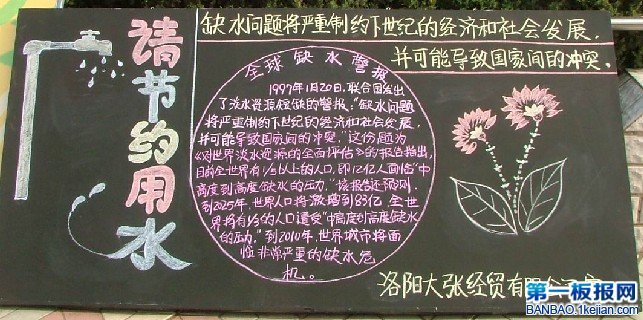 请节约用水
缺水问题将严重制约下世纪的经济和社会发展，
并可能导致国家间的冲突。
全球缺水警报
1997年1月20日，联合国发出
了淡水资源短缺的警报："缺水问题
将严重制约下世纪的经济和社会发展，
并可能导致国家间的冲突。"这份题为
《对世界淡水资源的全面评估》的报告指出，
目前全世界有1/5以上的人口，即12亿人面临"中
高度到高度缺水的压力。"该报告还预测，
到2025年，世界人口将激增到83亿，全世
界将有的人口遭受"中高度到高度缺水
的压力。"到2010年，世界城市将面
临非常严重的缺水危
机。
洛阳大张经贸有限公司
第一板报网
BANBAO.1kejian.com